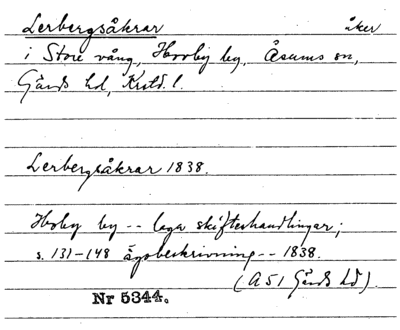 Lerbergsåkrar åker
i Store vång, Hovby by, Åsums sn,
Gärds hd, Krstd. l.
Lerbergsåkrar 1838.
Hoby by -- laga skifteshandlingar;
s. 131-148 ägobeskrivning -- 1838.
(A51 Gärds hd).
Nr 5344.